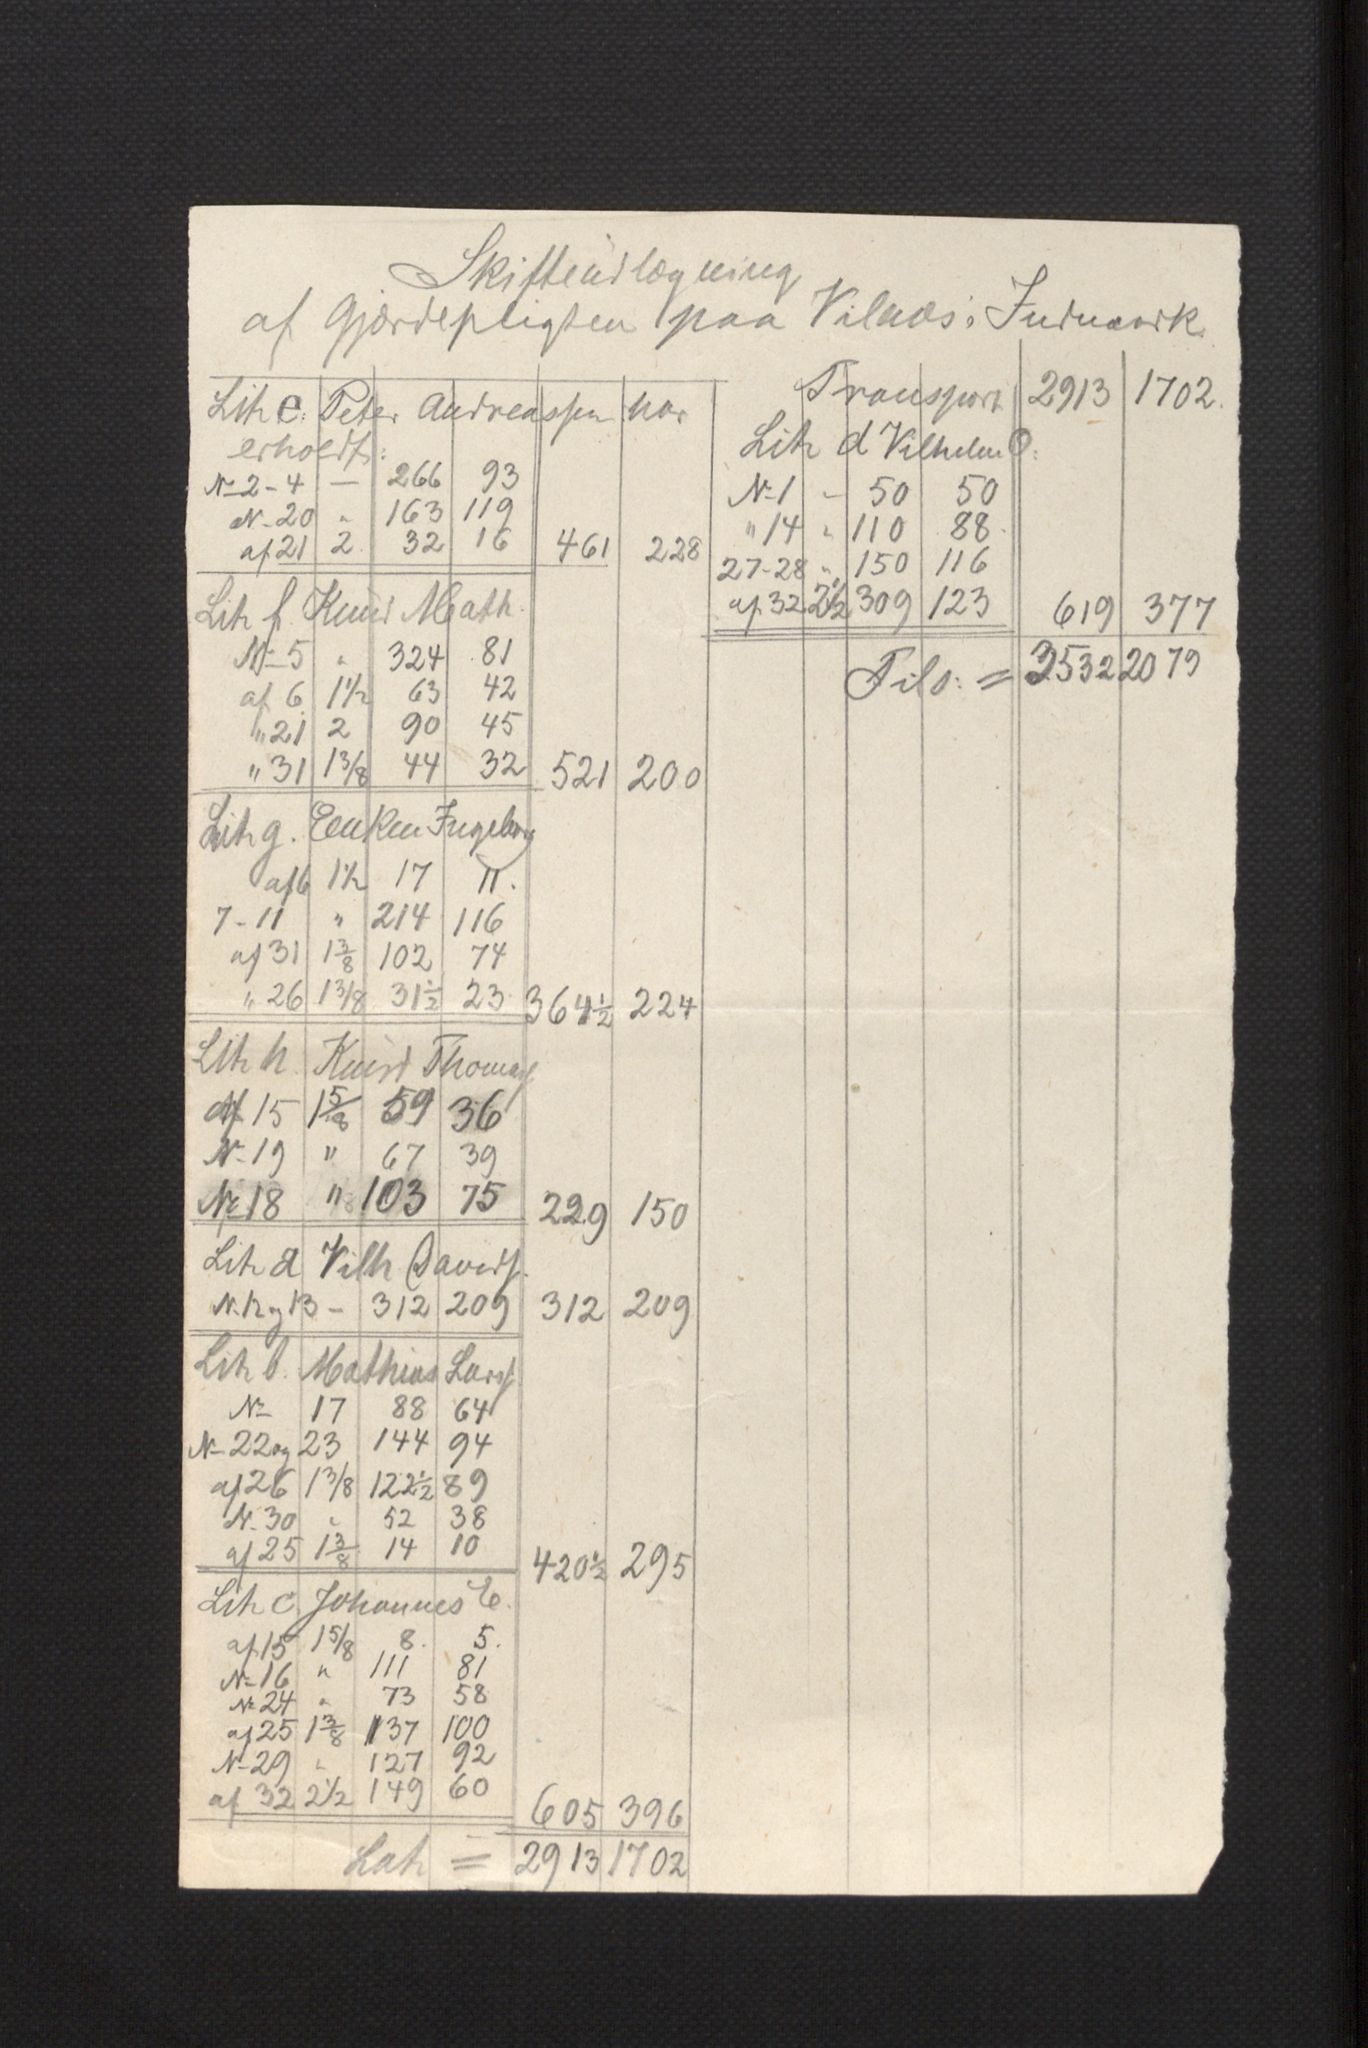 Skifteudlægning
af Gjærdepligten paa Vilnæs: Indmark.
Lit e. Peter Andreassen har
erholdt:
No 2-4 — 266 93
No 20 " 163 119
af 21 2 32 16 461 228
Lit f. Knud Math.
No 5 " 324 81
af 6 1½ 63 42
" 21 2 90 45
" 31 1 3/8 44 32 521 200
Lit g. Enken Ingeborg
af 6 1½ 17 11.
7-11 " 214 116
af 31 1 3/8 102 74
" 26 1 3/8 31½ 23 364½ 224
Lit h. Knud Thomas
Af 15 1 5/8 59 36
No 19 " 67 39
No 18 " 103 75 229 150
Lit a Vilh Davids.
No 12 og 13 - 312 209 312 209
Lit b. Mathias Lars
No 17 88 64
No 22 og 23 144 94
af 26 1 3/8 122½ 89
No 30 " 52 38
af 25 1 3/8 14 10 420½ 295
Lit c. Johannes E.
af 15 1 5/8 8. 5.
No 16 " 111 81
No 24 " 73 58
af 25 1 3/8 137 100
No 29 " 127 92
af 32 2½ 149 60 605 396
Lat = 2913 1702
Transport 2913 1702.
Lit d Vilhelm O.
No 1 - 50 50
" 14 " 110 88
27-28 " 150 116
af 32 2½ 309 123 619 377
Tils: = 3532 2079